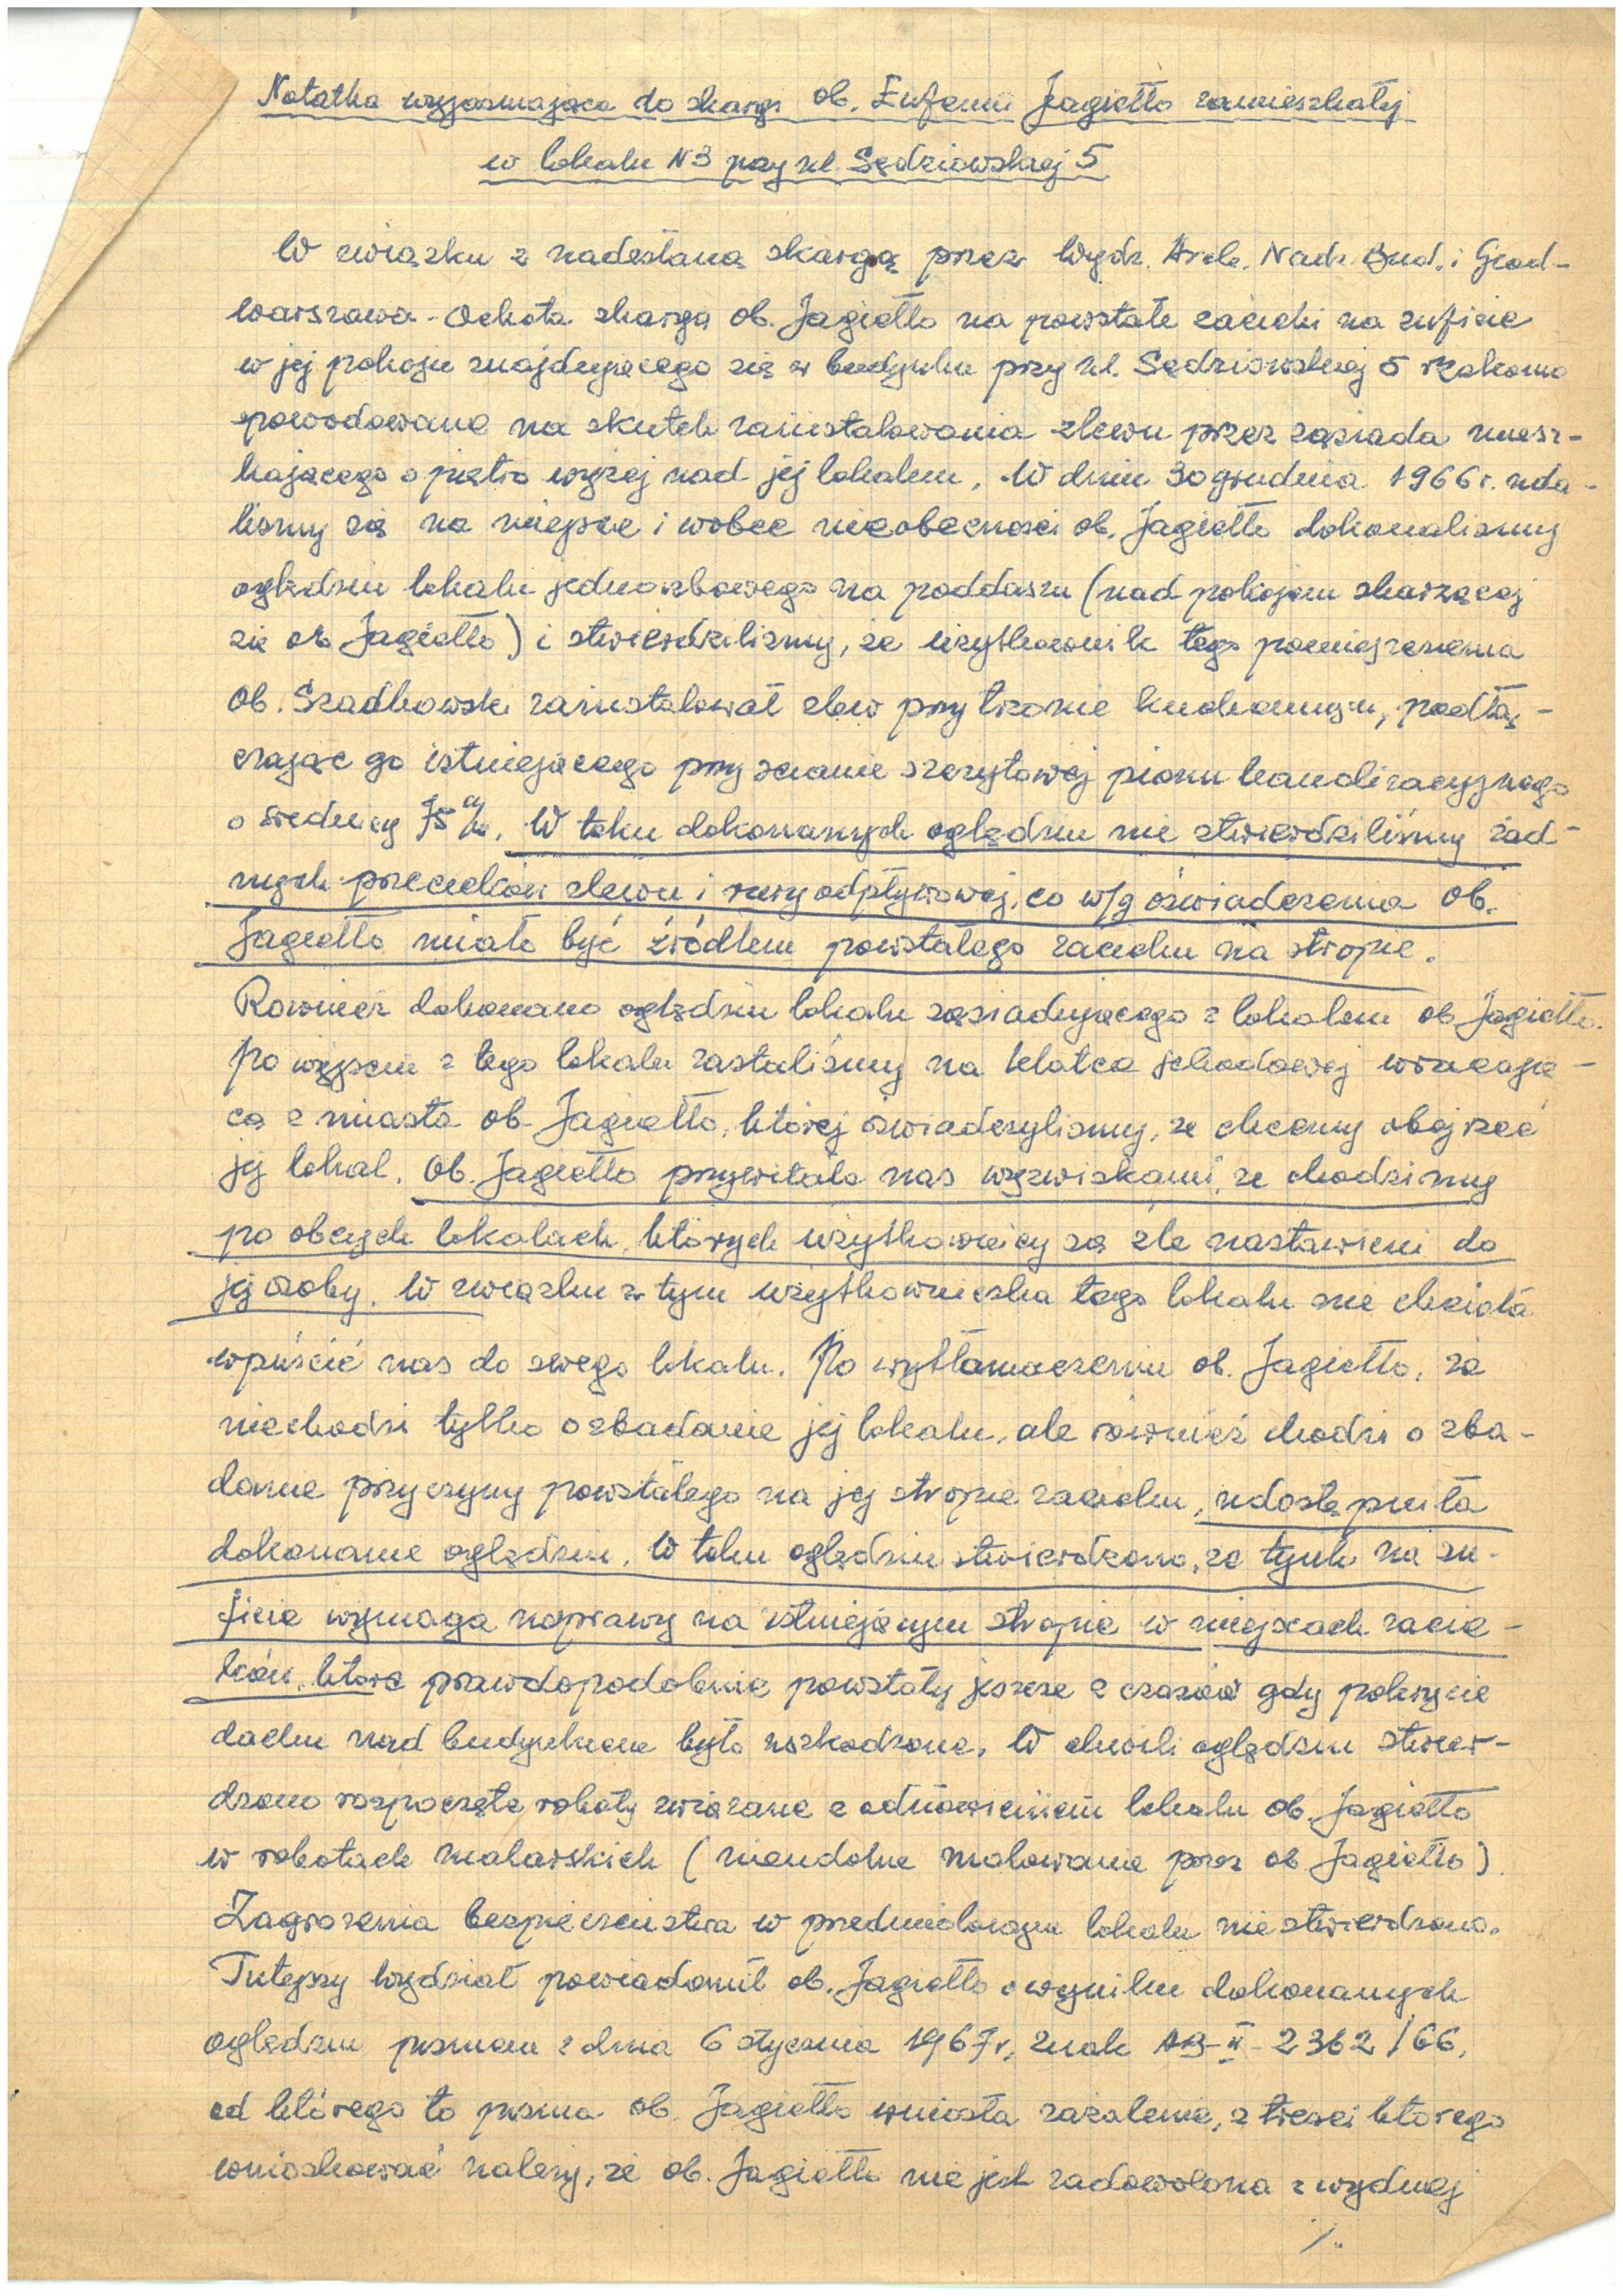 Notatka wyjaśniająca do skargi ob. Eufemii Jagiełło zamieszkałej
w lokalu N3 przy ul. Sędziowskiej 5
W związku z nadesłaną skargą przez Wydz. Arch. Nadz. Bud. i Geod-
Warszawa-Ochota skargą ob. Jagiełło na powstałe zacieki na suficie
w jej pokoju znajdującego się w budynku przy ul. Sędziowskiej 5 rzekomo
spowodowane na skutek zainstalowania zlewu przez sąsiada miesz-
kającego o piętro wyżej nad jej lokalem. W dniu 30 grudnia 1966 r. uda-
liśmy się na miejsce i wobec nieobecności ob. Jagiełło dokonaliśmy
oględzin lokalu jednoizbowego na poddaszu (nad pokojem skarżącej
się ob. Jagiełło) i stwierdziliśmy, że użytkownik tego pomieszczenia
Ob. Szadkowski zainstalował zlew przy trzonie kuchennym, podłą-
czając go istniejącego przy ścianie szczytowej pionu kanalizacyjnego
o średnicy 75 . W toku dokonanych oględzin nie stwierdziliśmy żad-
nych przecieków zlewu i rury odpływowej, co w/g oświadczenia ob.
Jagiełło miało być źródłem powstałego zacieku na stropie.
Rownież dokonano oględzin lokalu sąsiadującego z lokalem ob. Jagiełło.
Po wyjściu z tego lokalu zastaliśmy na klatce schodowej wracają-
cą z miasta ob. Jagiełło, której oświadczyliśmy, że chcemy obejrzeć
jej lokal. Ob. Jagiełło przywitała nas wyzwiskami, że chodzimy
po obcych lokalach, których użytkownicy są źle nastawieni do
jej osoby. W związku z tym użytkowniczka tego lokalu nie chciała
wpuścić nas do swego lokalu. Po wytłamaczeniu ob. Jagiełło, że
niechodzi tylko o zbadanie jej lokalu, ale również chodzi o zba-
danie przyczyny powstałego na jej stropie zacieku, udostępniła
dokonanie oględzin. W toku oględzin stwierdzono, że tynk na su-
ficie wymaga naprawy na istniejącym stropie w miejscach zacie-
ków, które prawdopodobnie powstały jeszcze z czasów gdy pokrycie
dachu nad budynkiem było uszkodzone. W chwili oględzin stwier-
dzono rozpoczęte roboty związane z odnowieniem lokalu ob. Jagiełło
w robotach malarskich (nieudolne malowanie przez ob. Jagiełło).
Zagrożenia bezpieczeństwa w przedmiotowym lokalu nie stwierdzono.
Tutejszy wydział powiadomił ob. Jagiełło o wyniku dokonanych
oględzin pismem z dnia 6 stycznia 1967 r. znak AB-II-2362/66,
od którego to pisma ob. Jagiełło wniosła zażalenie, z treści którego
wnioskować należy, że ob. Jagiełło nie jest zadowolona z wydanej
./.